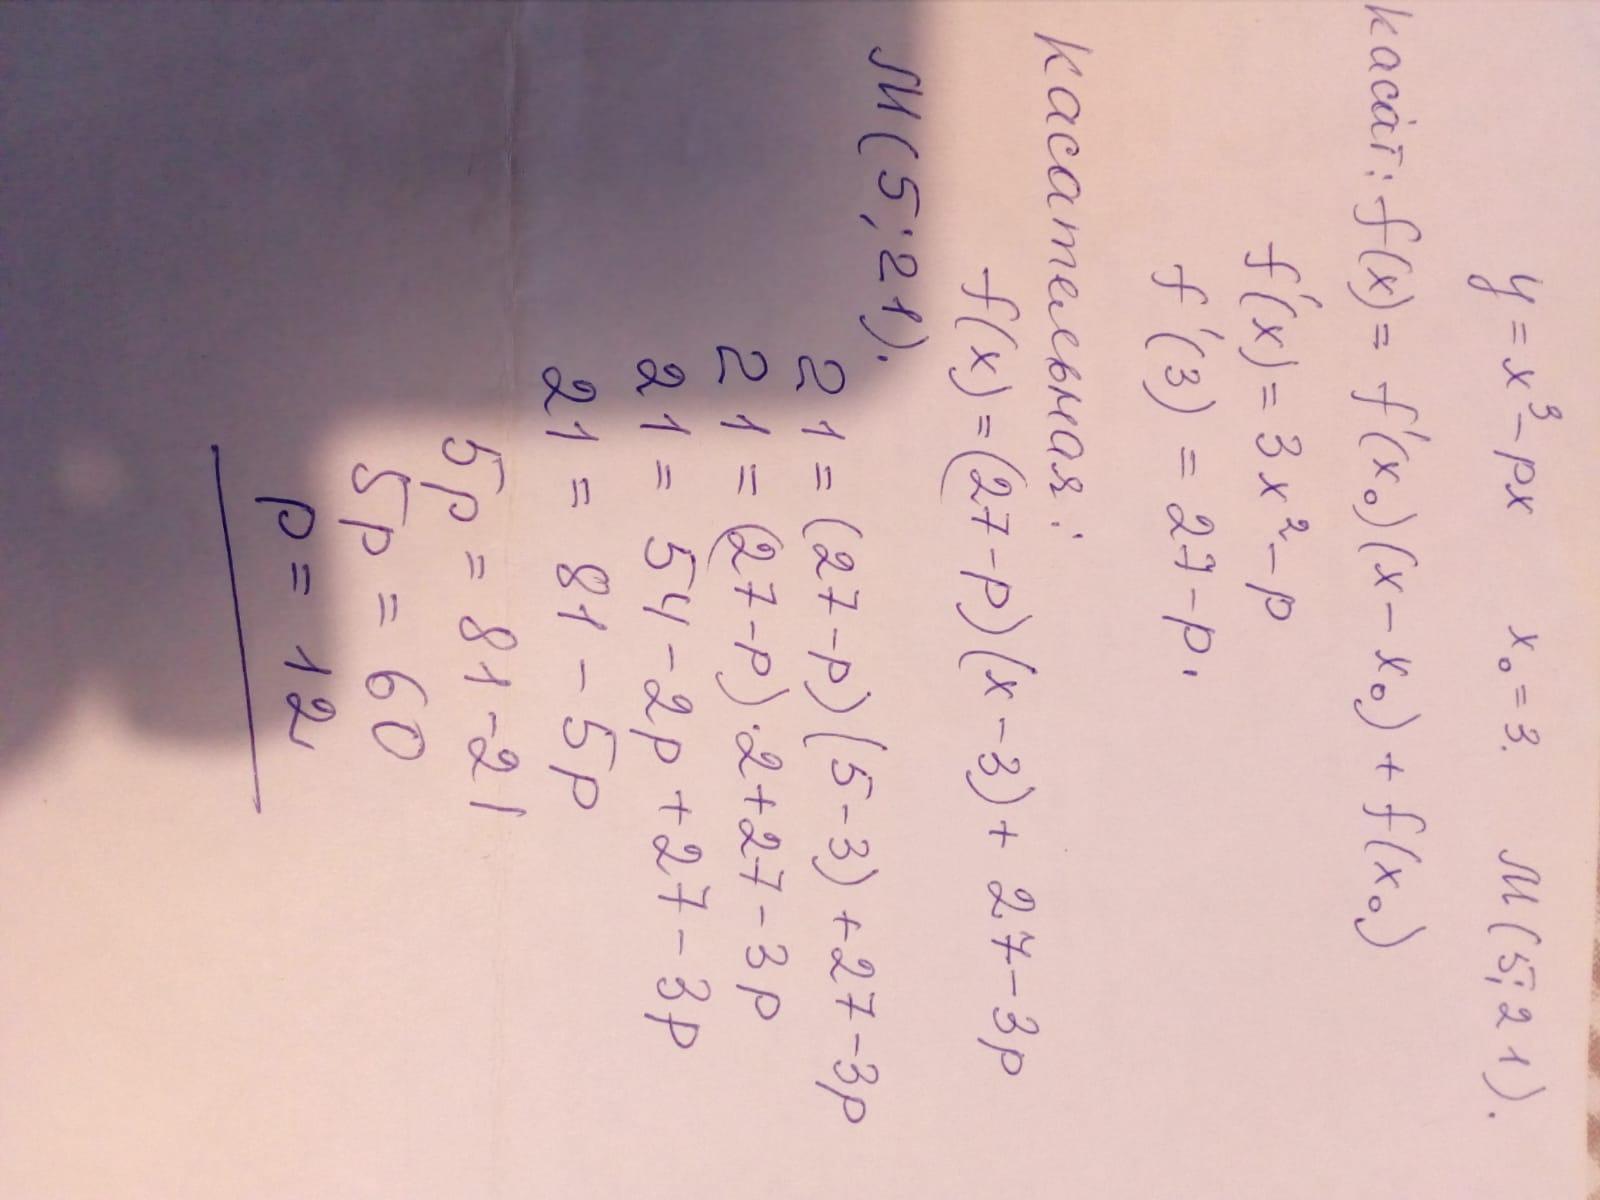 y = x³ - px   x₀ = 3.   M(5; 21).
касат: f(x) = f′(x₀)(x - x₀) + f(x₀)
f′(x) = 3x² - p
f′(3) = 27 - p.
Касательная:
f(x) = (27 - p)(x - 3) + 27 - 3p
M(5; 21).
21 = (27 - p)(5 - 3) + 27 - 3p
21 = (27 - p)·2 + 27 - 3p
21 = 54 - 2p + 27 - 3p
21 = 81 - 5p
5p = 81 - 21
5p = 60
p = 12